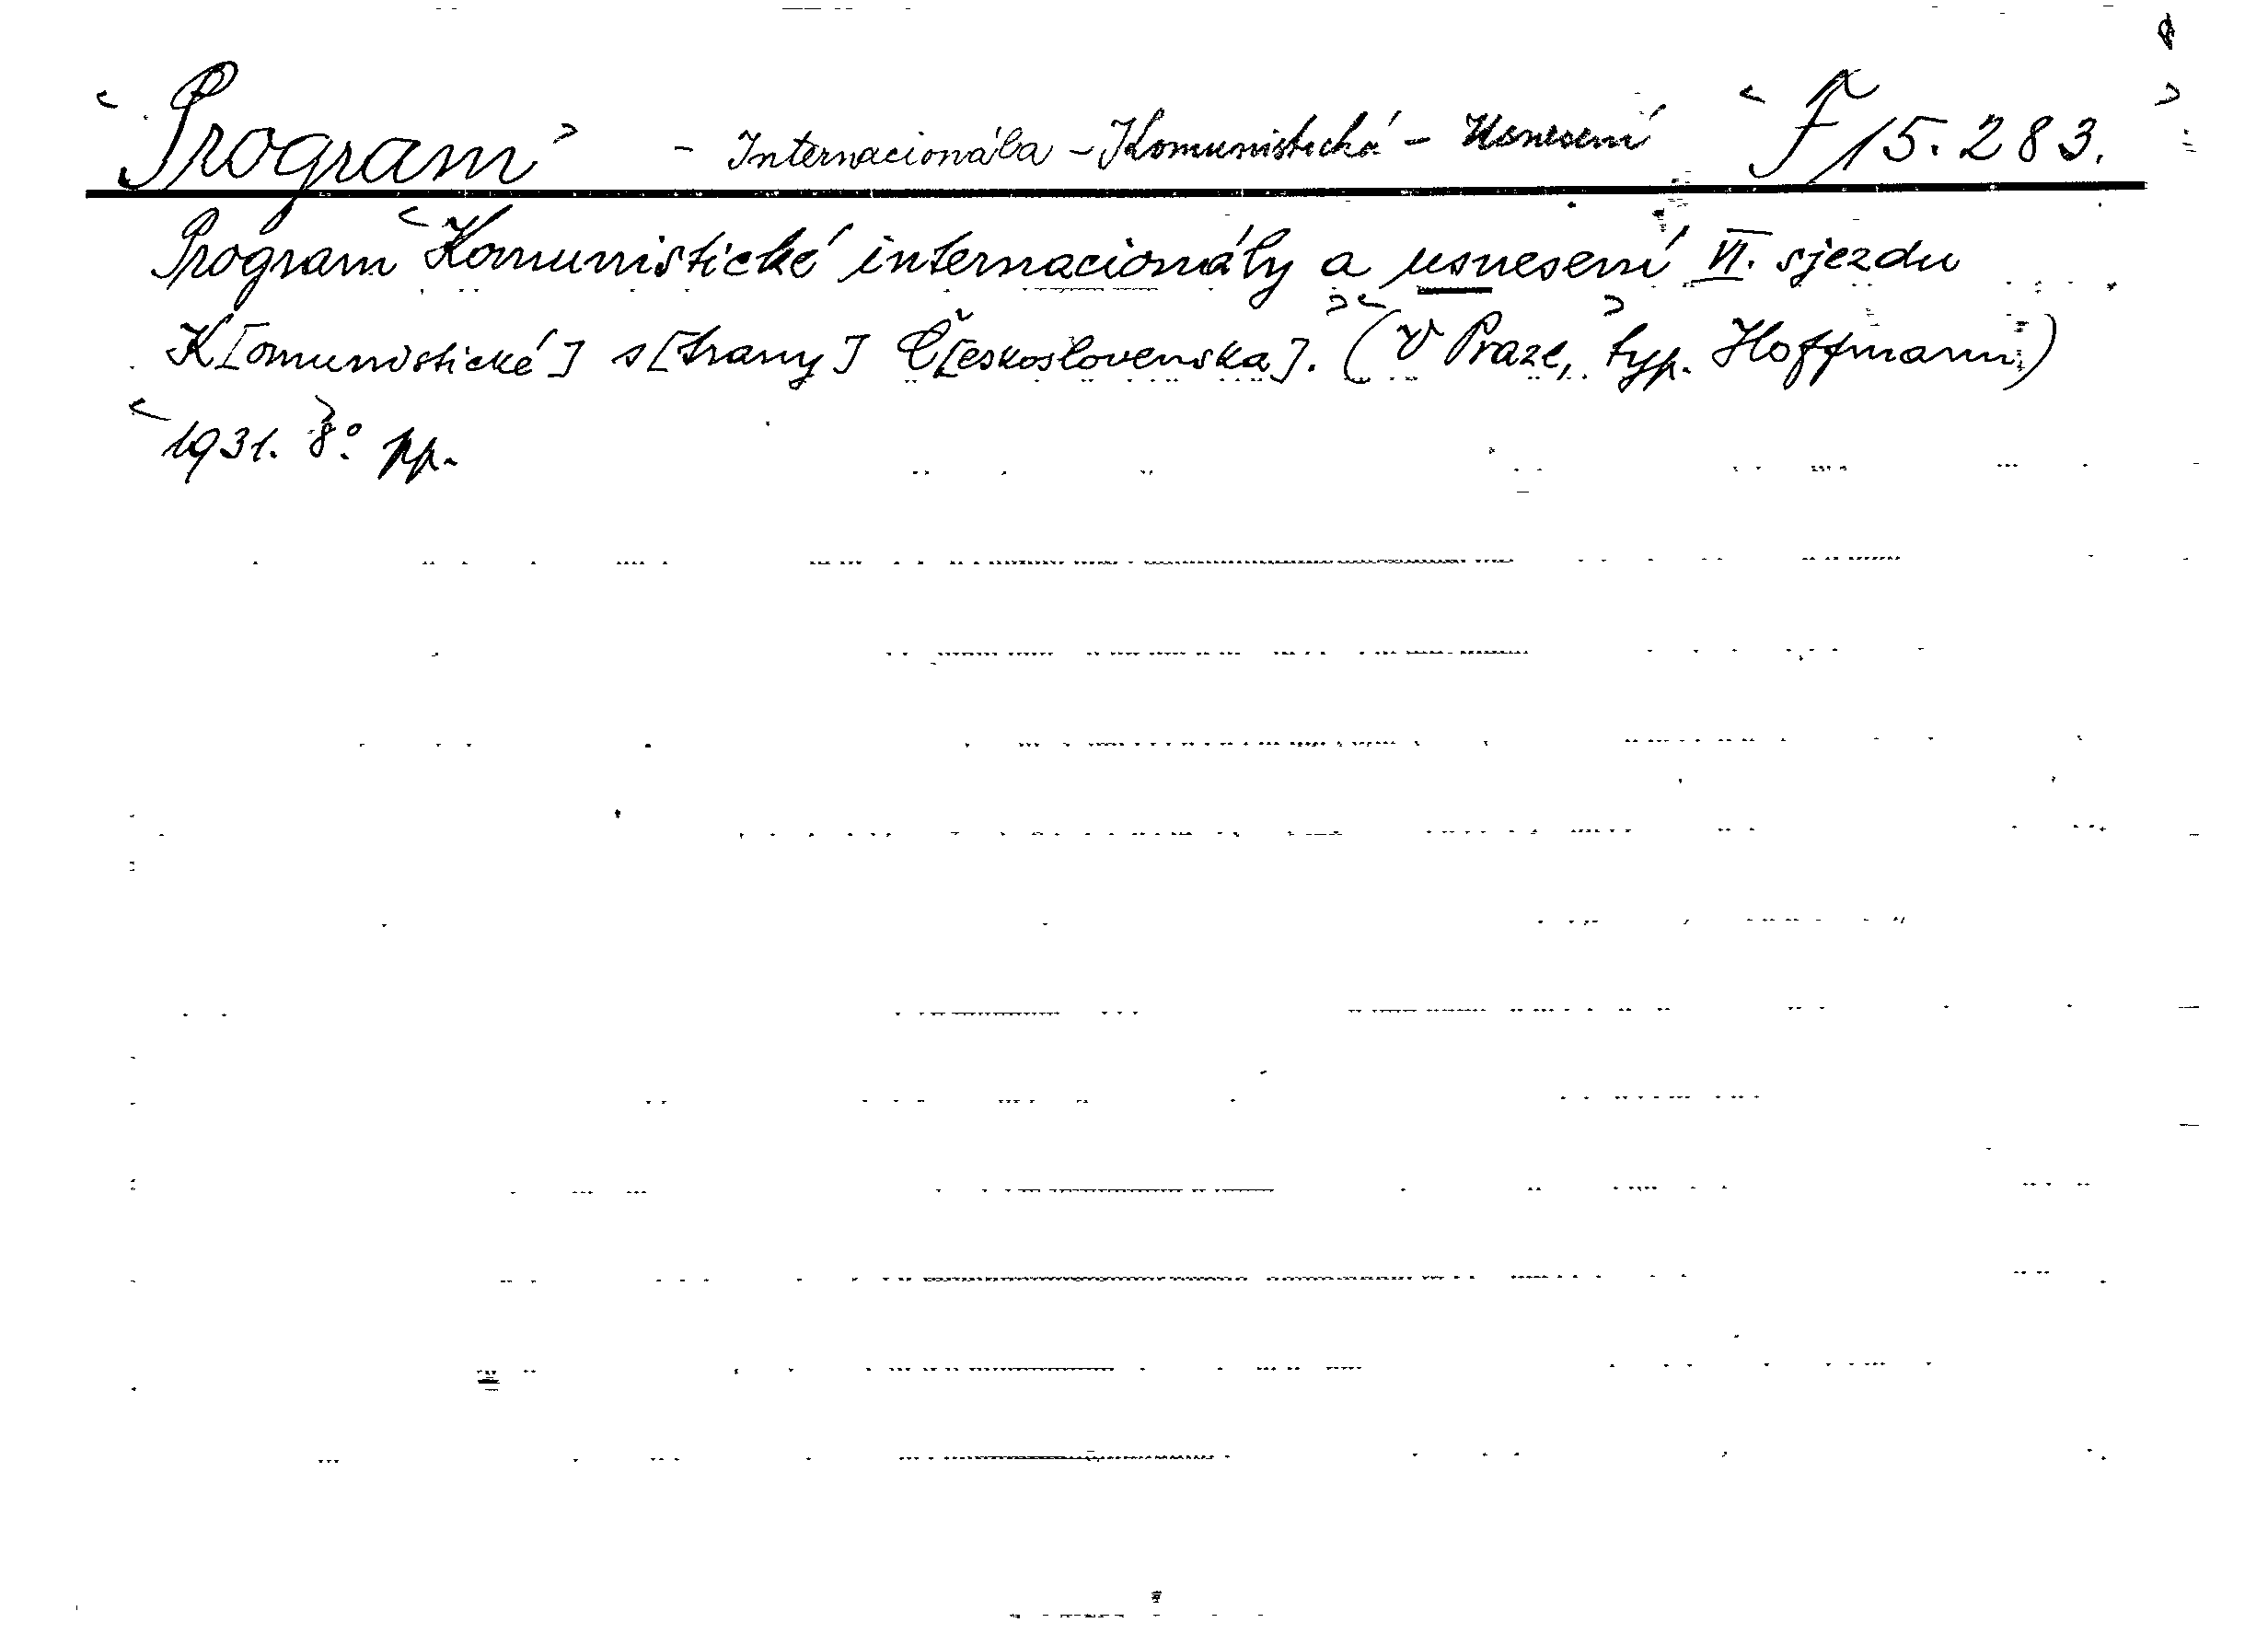 <Program> - Internacionála - Komunistická - Usnesení <F 15.283.>
Program <Komunistické internacionály a usnesení VI. sjezdu
K[omunistické] s[trany] Č[eskoslovenska].> <(V Praze,> typ. Hoffmann)
<1931.> 8°. pp.